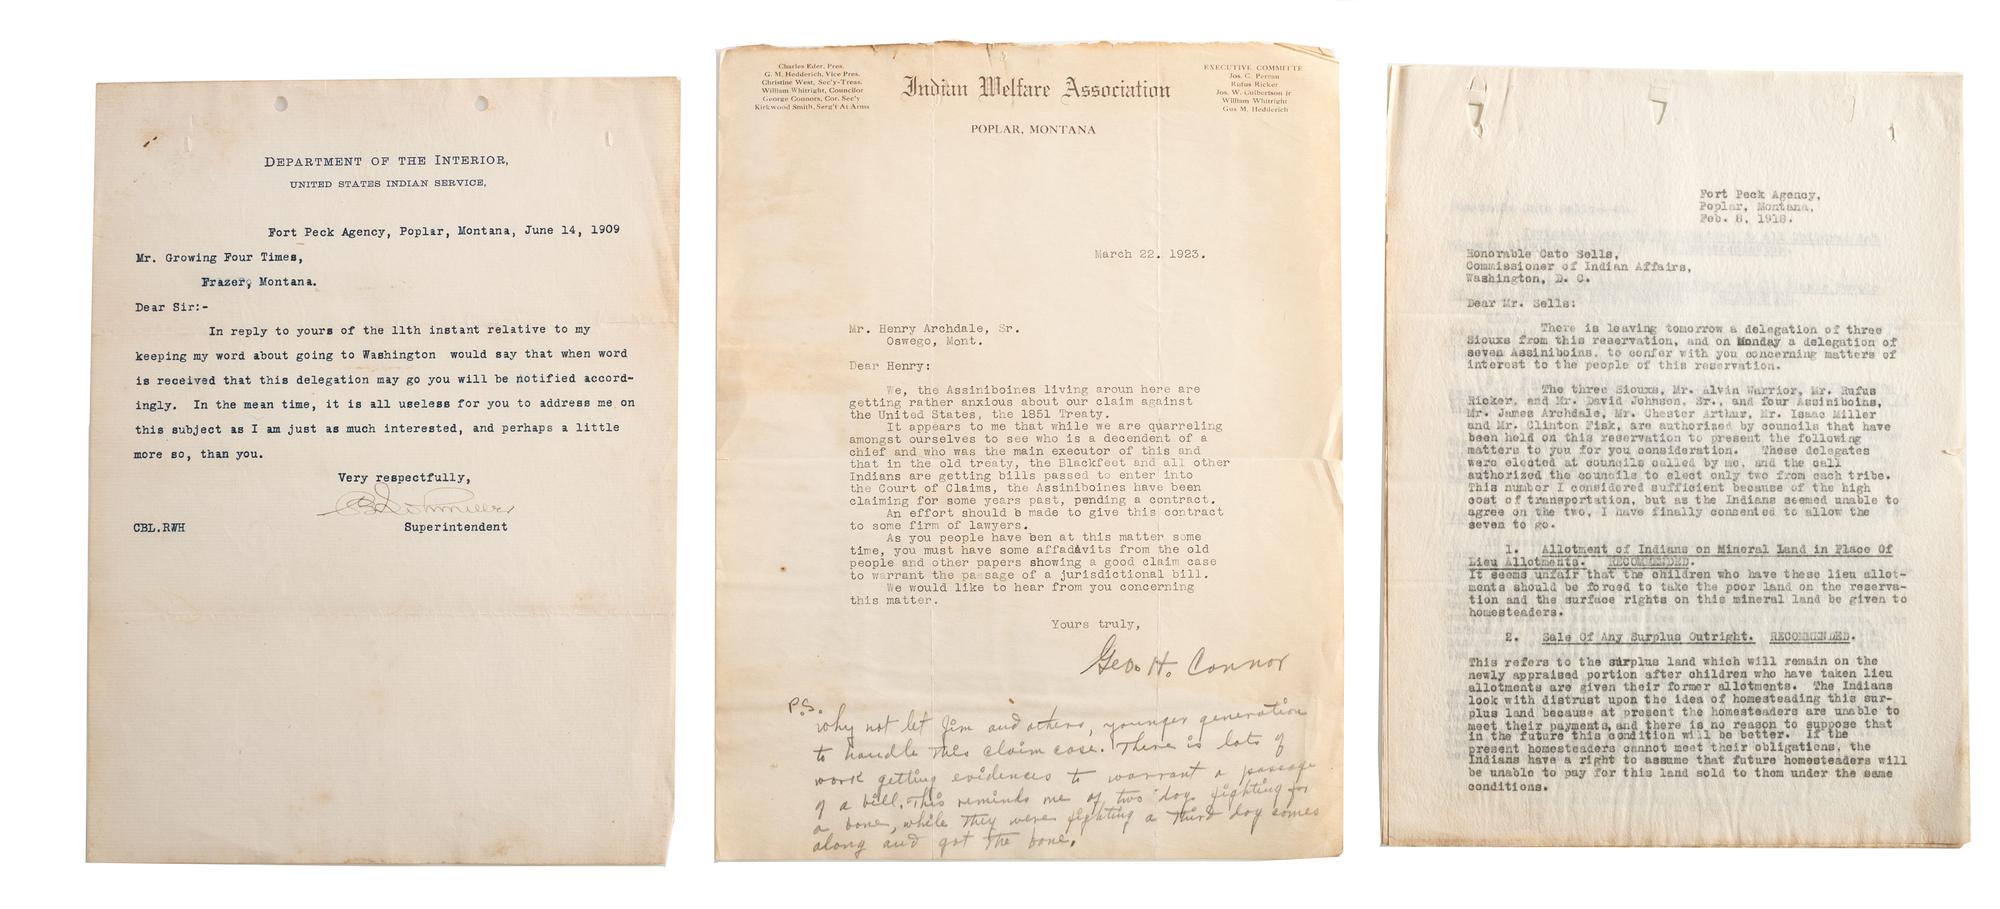 DEPARTMENT OF THE INTERIOR,
UNITED STATES INDIAN SERVICE,
Fort Peck Agency, Poplar, Montana, June 14, 1909
Mr. Growing Four Times,
Frazer, Montana.
Dear Sir:-
In reply to yours of the 11th instant relative to my
keeping my word about going to Washington would say that when word
is received that this delegation may go you will be notified accord-
ingly. In the mean time, it is all useless for you to address me on
this subject as I am just as much interested, and perhaps a little
more so, than you.
Very respectfully,
CBL.RWH
Superintendent
Charles Eder, Pres.
G. M. Hedderich, Vice Pres.
Christine West, Sec'y-Treas.
William Whitright, Councilor
George Connors, Cor. Sec'y
Kirkwood Smith, Serg't At Arms
Indian Welfare Association
POPLAR, MONTANA
EXECUTIVE COMMITTE
Jos. C. Perrau
Rufus Ricker
Jos. W. Culbertson jr
William Whitright
Gus M. Hedderich
March 22. 1923.
Mr. Henry Archdale, Sr.
Oswego, Mont.
Dear Henry:
We, the Assiniboines living aroun here are
getting rather anxious about our claim against
the United States, the 1851 Treaty.
It appears to me that while we are quarreling
amongst ourselves to see who is a decendent of a
chief and who was the main executor of this and
that in the old treaty, the Blackfeet and all other
Indians are getting bills passed to enter into
the Court of Claims, the Assiniboines have been
claiming for some years past, pending a contract.
An effort should b made to give this contract
to some firm of lawyers.
As you people have ben at this matter some
time, you must have some affadavits from the old
people and other papers showing a good claim case
to warrant the passage of a jurisdictional bill.
We would like to hear from you concerning
this matter.
Yours truly,
Geo. H. Connor
P.S.
Why not let Jim and others, younger generation
to handle this claim case. There is lots of
work getting evidences to warrant a passage
of a bill. This reminds me of two dog fighting for
a bone, while they were fighting a third dog comes
along and got the bone.
Fort Peck Agency,
Poplar, Montana,
Feb. 8, 1918.
Honorable Cato Sells,
Commissioner of Indian Affairs,
Washington, D. C.
Dear Mr. Sells:
There is leaving tomorrow a delegation of three
Sioux from this reservation, and on Monday a delegation of
seven Assiniboins, to confer with you concerning matters of
interest to the people of this reservation.
The three Sioux, Mr. Alvin Warrior, Mr. Rufus
Ricker, and Mr. David Johnson, Sr., and four Assiniboins,
Mr. James Archdale, Mr. Chester Arthur, Mr. Isaac Miller
and Mr. Clinton Fisk, are authorized by councils that have
been held on this reservation to present the following
matters to you for you consideration. These delegates
were elected at councils called by me, and the call
authorized the councils to elect only two from each tribe.
This number I considered sufficient because of the high
cost of transportation, but as the Indians seemed unable to
agree on the two, I have finally consented to allow the
seven to go.
1. Allotment of Indians on Mineral Land in Place Of
Lieu Allotments. RECOMMENDED.
It seems unfair that the children who have these lieu allot-
ments should be forced to take the poor land on the reserva-
tion and the surface rights on this mineral land be given to
homesteaders.
2. Sale Of Any Surplus Outright. RECOMMENDED.
This refers to the surplus land which will remain on the
newly appraised portion after children who have taken lieu
allotments are given their former allotments. The Indians
look with distrust upon the idea of homesteading this sur-
plus land because at present the homesteaders are unable to
meet their payments, and there is no reason to suppose that
in the future this condition will be better. If the
present homesteaders cannot meet their obligations, the
Indians have a right to assume that future homesteaders will
be unable to pay for this land sold to them under the same
conditions.